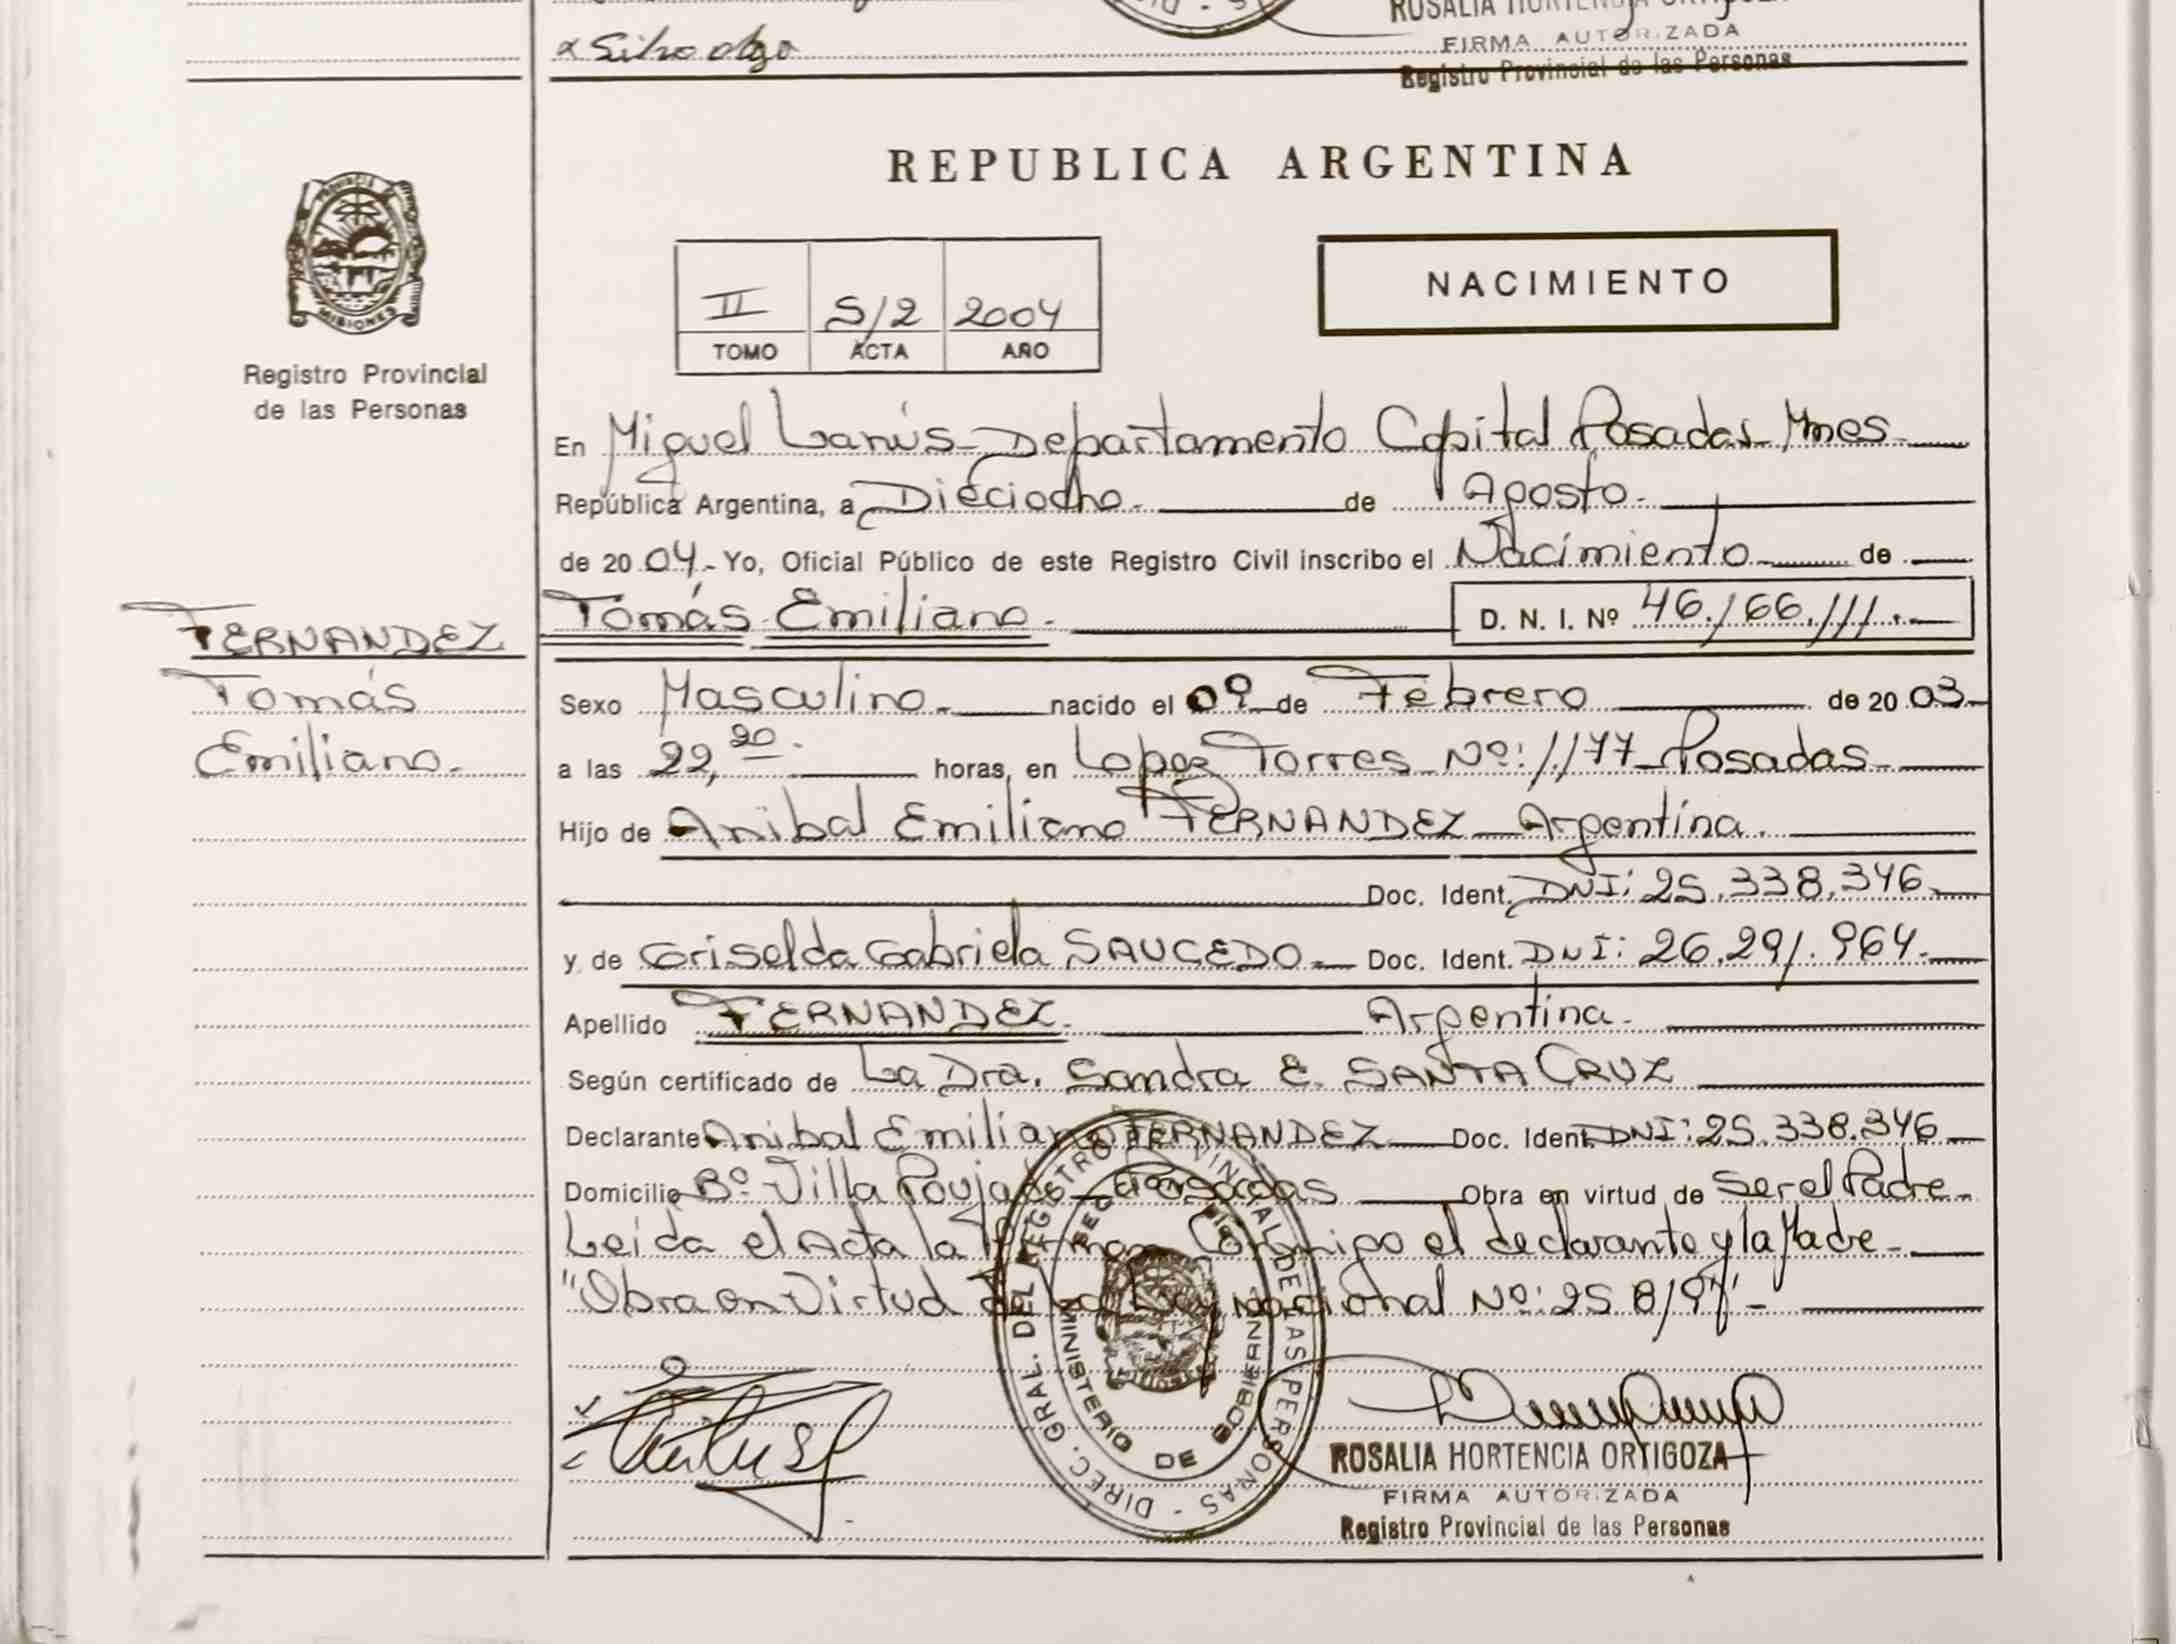 ROSALIA HORTENCIA ORTIGOZA
FIRMA AUTORIZADA
Registro Provincial de las Personas
PROVINCIA
MISIONES
Registro Provincial
de las Personas
REPUBLICA ARGENTINA
NACIMIENTO
II 512 2004
TOMO ACTA AÑO
En Miguel Lanús - Departamento Capital Posadas Mnes
República Argentina, a Dieciocho. de Agosto.
de 2004.- Yo, Oficial Público de este Registro Civil inscribo el Nacimiento de
FERNANDEZ
Tomás
Emiliano.
Tomás Emiliano. D. N. I. Nº 46.166.111.
Sexo Masculino. nacido el 09 de Febrero de 2003
a las 22,20. horas, en Lopez Torres Nº: 1177 Posadas
Hijo de Anibal Emiliano FERNANDEZ Argentina.
Doc. Ident. DNI: 25.338.346
y de Griselda Gabriela SAUCEDO Doc. Ident. DNI: 26.291.964.
Apellido FERNANDEZ. Argentina.
Según certificado de La Dra. Sandra E. SANTA CRUZ
Declarante Anibal Emiliano FERNANDEZ Doc. Ident. DNI: 25.338.346
Domicilio Bº Villa Poujade - Posadas Obra en virtud de Ser el Padre
Leida el Acta la Firman Conmigo el declarante y la Madre
"Obra en Virtud de la Ley nacional Nº: 25 819"
DIREC. GRAL. DEL REGISTRO PROVINCIAL DE LAS PERSONAS
MINISTERIO DE GOBIERNO
ROSALIA HORTENCIA ORTIGOZA
FIRMA AUTORIZADA
Registro Provincial de las Personas